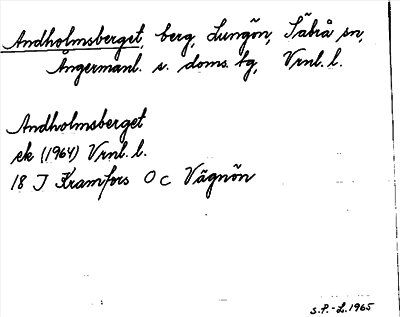 Andholmsberget, berg, Lungön, Säbrå sn,
Ångermanl. s. doms. tg, Vrnl. l.
Andholmsberget
ek (1964) Vrnl. l.
18 J Kramfors O c Vägnön
S.P.-L. 1965